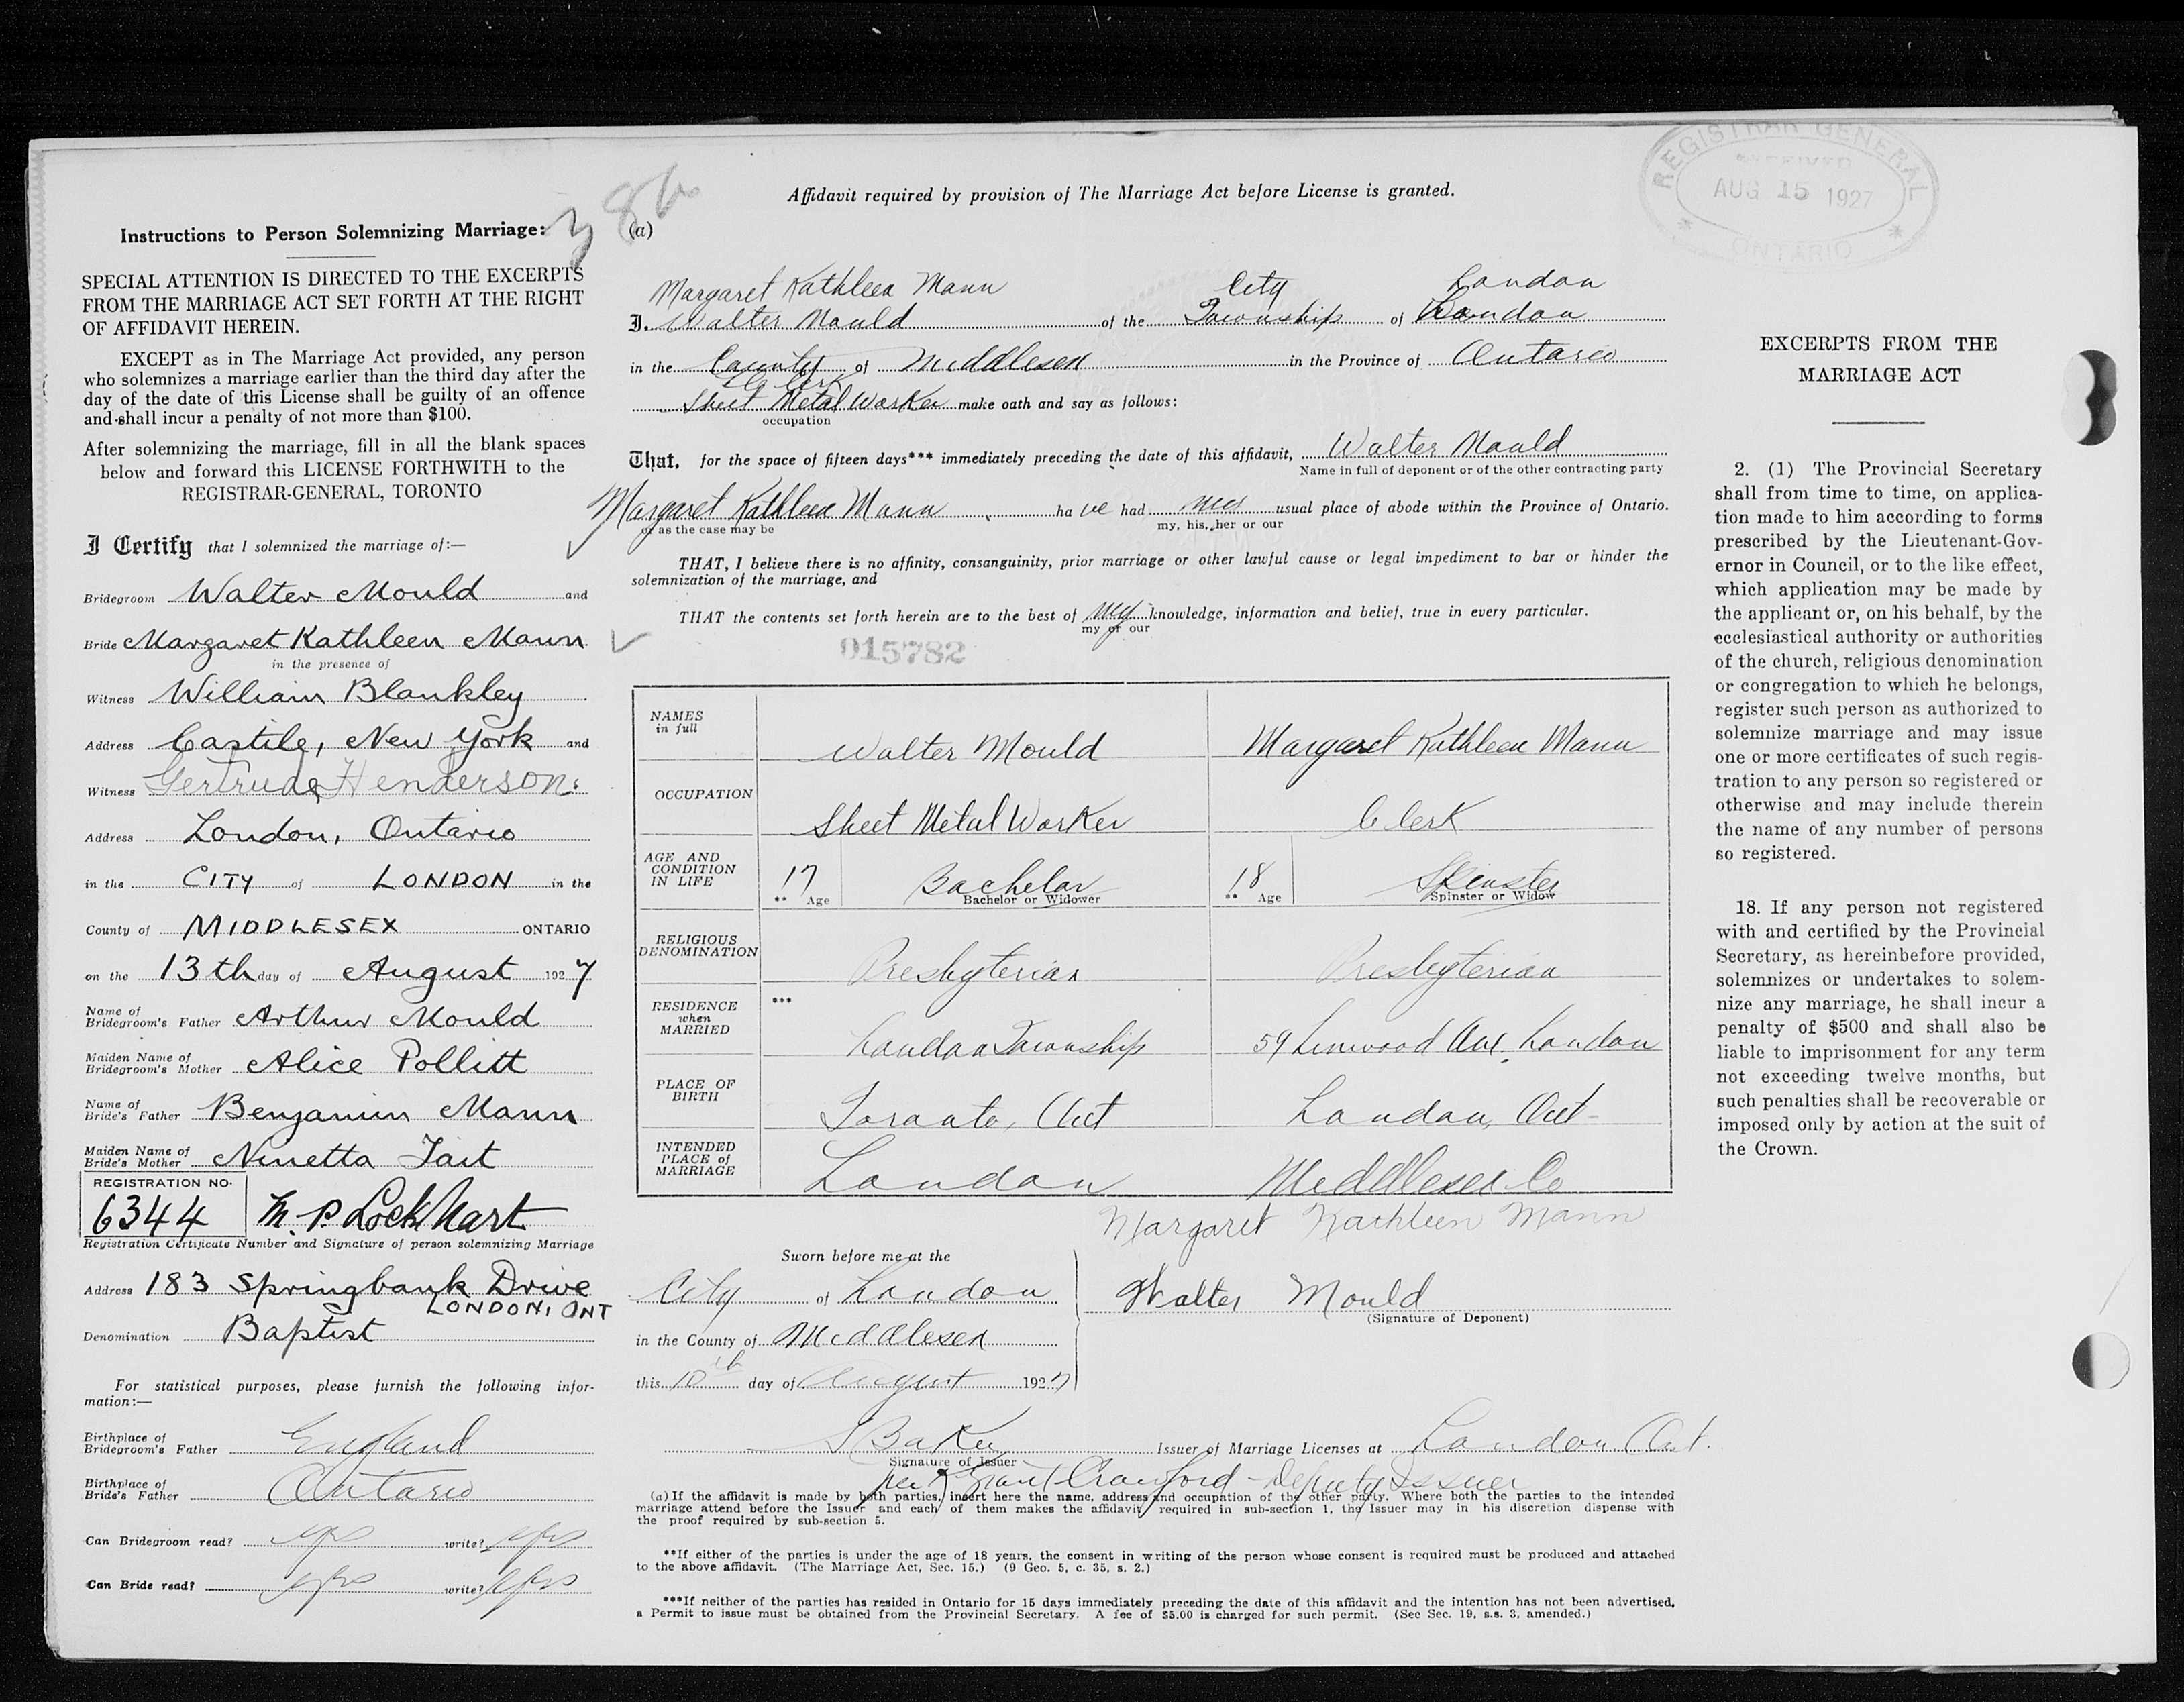 REGISTRAR GENERAL
RECEIVED
AUG 15 1927
ONTARIO
Instructions to Person Solemnizing Marriage:
SPECIAL ATTENTION IS DIRECTED TO THE EXCERPTS
FROM THE MARRIAGE ACT SET FORTH AT THE RIGHT
OF AFFIDAVIT HEREIN.
EXCEPT as in The Marriage Act provided, any person
who solemnizes a marriage earlier than the third day after the
day of the date of this License shall be guilty of an offence
and shall incur a penalty of not more than $100.
After solemnizing the marriage, fill in all the blank spaces
below and forward this LICENSE FORTHWITH to the
REGISTRAR-GENERAL, TORONTO
I Certify that I solemnized the marriage of:—
Bridegroom Walter Mould and
Bride Margaret Kathleen Mann
in the presence of
Witness William Blankley
Address Castile, New York and
Witness Gertrude Henderson
Address London, Ontario
in the CITY of LONDON in the
County of MIDDLESEX ONTARIO
on the 13th day of August 1927
Name of
Bridegroom's Father Arthur Mould
Maiden Name of
Bridegroom's Mother Alice Pollitt
Name of
Bride's Father Benjamin Mann
Maiden Name of
Bride's Mother Ninetta Tait
REGISTRATION NO.
6344 M. P. Lockhart
Registration Certificate Number and Signature of person solemnizing Marriage
Address 183 Springbank Drive
LONDON, ONT
Denomination Baptist
For statistical purposes, please furnish the following infor-
mation:—
Birthplace of
Bridegroom's Father England
Birthplace of
Bride's Father Ontario
Can Bridegroom read? yes write? yes
Can Bride read? yes write? yes
Affidavit required by provision of The Marriage Act before License is granted.
(a)
Margaret Kathleen Mann City London
I, Walter Mould of the Township of London
in the County of Middlesex in the Province of Ontario
Clerk
Sheet Metal Worker make oath and say as follows:
occupation
That, for the space of fifteen days*** immediately preceding the date of this affidavit, Walter Mould
Name in full of deponent or of the other contracting party
Margaret Kathleen Mann ha ve had usual place of abode within the Province of Ontario.
or as the case may be my, his, her or our
THAT, I believe there is no affinity, consanguinity, prior marriage or other lawful cause or legal impediment to bar or hinder the
solemnization of the marriage, and
THAT the contents set forth herein are to the best of my knowledge, information and belief, true in every particular.
my or our
015782
NAMES
in full Walter Mould Margaret Kathleen Mann
OCCUPATION Sheet Metal Worker Clerk
AGE AND
CONDITION
IN LIFE 17 Bachelor 18 Spinster
** Age Bachelor or Widower ** Age Spinster or Widow
RELIGIOUS
DENOMINATION Presbyterian Presbyterian
RESIDENCE
when
MARRIED *** London Township 59 Linwood Ave, London
PLACE OF
BIRTH Toronto, Ont London, Ont
INTENDED
PLACE of
MARRIAGE London Middlesex Co
Margaret Kathleen Mann
Sworn before me at the
City of London
Walter Mould
(Signature of Deponent)
in the County of Middlesex
this 10th day of August 1927
S Baker Issuer of Marriage Licenses at London Ont.
Signature of Issuer
per Grant Crawford - Deputy Issuer
(a) If the affidavit is made by both parties, insert here the name, address and occupation of the other party. Where both the parties to the intended
marriage attend before the Issuer and each of them makes the affidavit required in sub-section 1, the Issuer may in his discretion dispense with
the proof required by sub-section 5.
**If either of the parties is under the age of 18 years, the consent in writing of the person whose consent is required must be produced and attached
to the above affidavit. (The Marriage Act, Sec. 15.) (9 Geo. 5, c. 35, s. 2.)
***If neither of the parties has resided in Ontario for 15 days immediately preceding the date of this affidavit and the intention has not been advertised,
a Permit to issue must be obtained from the Provincial Secretary. A fee of $5.00 is charged for such permit. (See Sec. 19, s.s. 3, amended.)
EXCERPTS FROM THE
MARRIAGE ACT
2. (1) The Provincial Secretary
shall from time to time, on applica-
tion made to him according to forms
prescribed by the Lieutenant-Gov-
ernor in Council, or to the like effect,
which application may be made by
the applicant or, on his behalf, by the
ecclesiastical authority or authorities
of the church, religious denomination
or congregation to which he belongs,
register such person as authorized to
solemnize marriage and may issue
one or more certificates of such regis-
tration to any person so registered or
otherwise and may include therein
the name of any number of persons
so registered.
18. If any person not registered
with and certified by the Provincial
Secretary, as hereinbefore provided,
solemnizes or undertakes to solem-
nize any marriage, he shall incur a
penalty of $500 and shall also be
liable to imprisonment for any term
not exceeding twelve months, but
such penalties shall be recoverable or
imposed only by action at the suit of
the Crown.